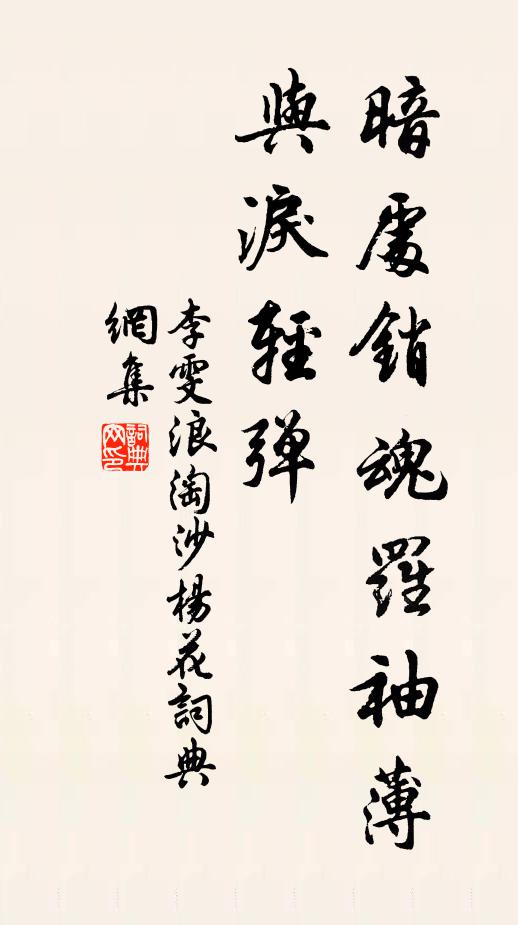 暗處銷魂羅袖薄
與淚輕彈
李雯浪淘沙楊花詞典
網集
詞典網印